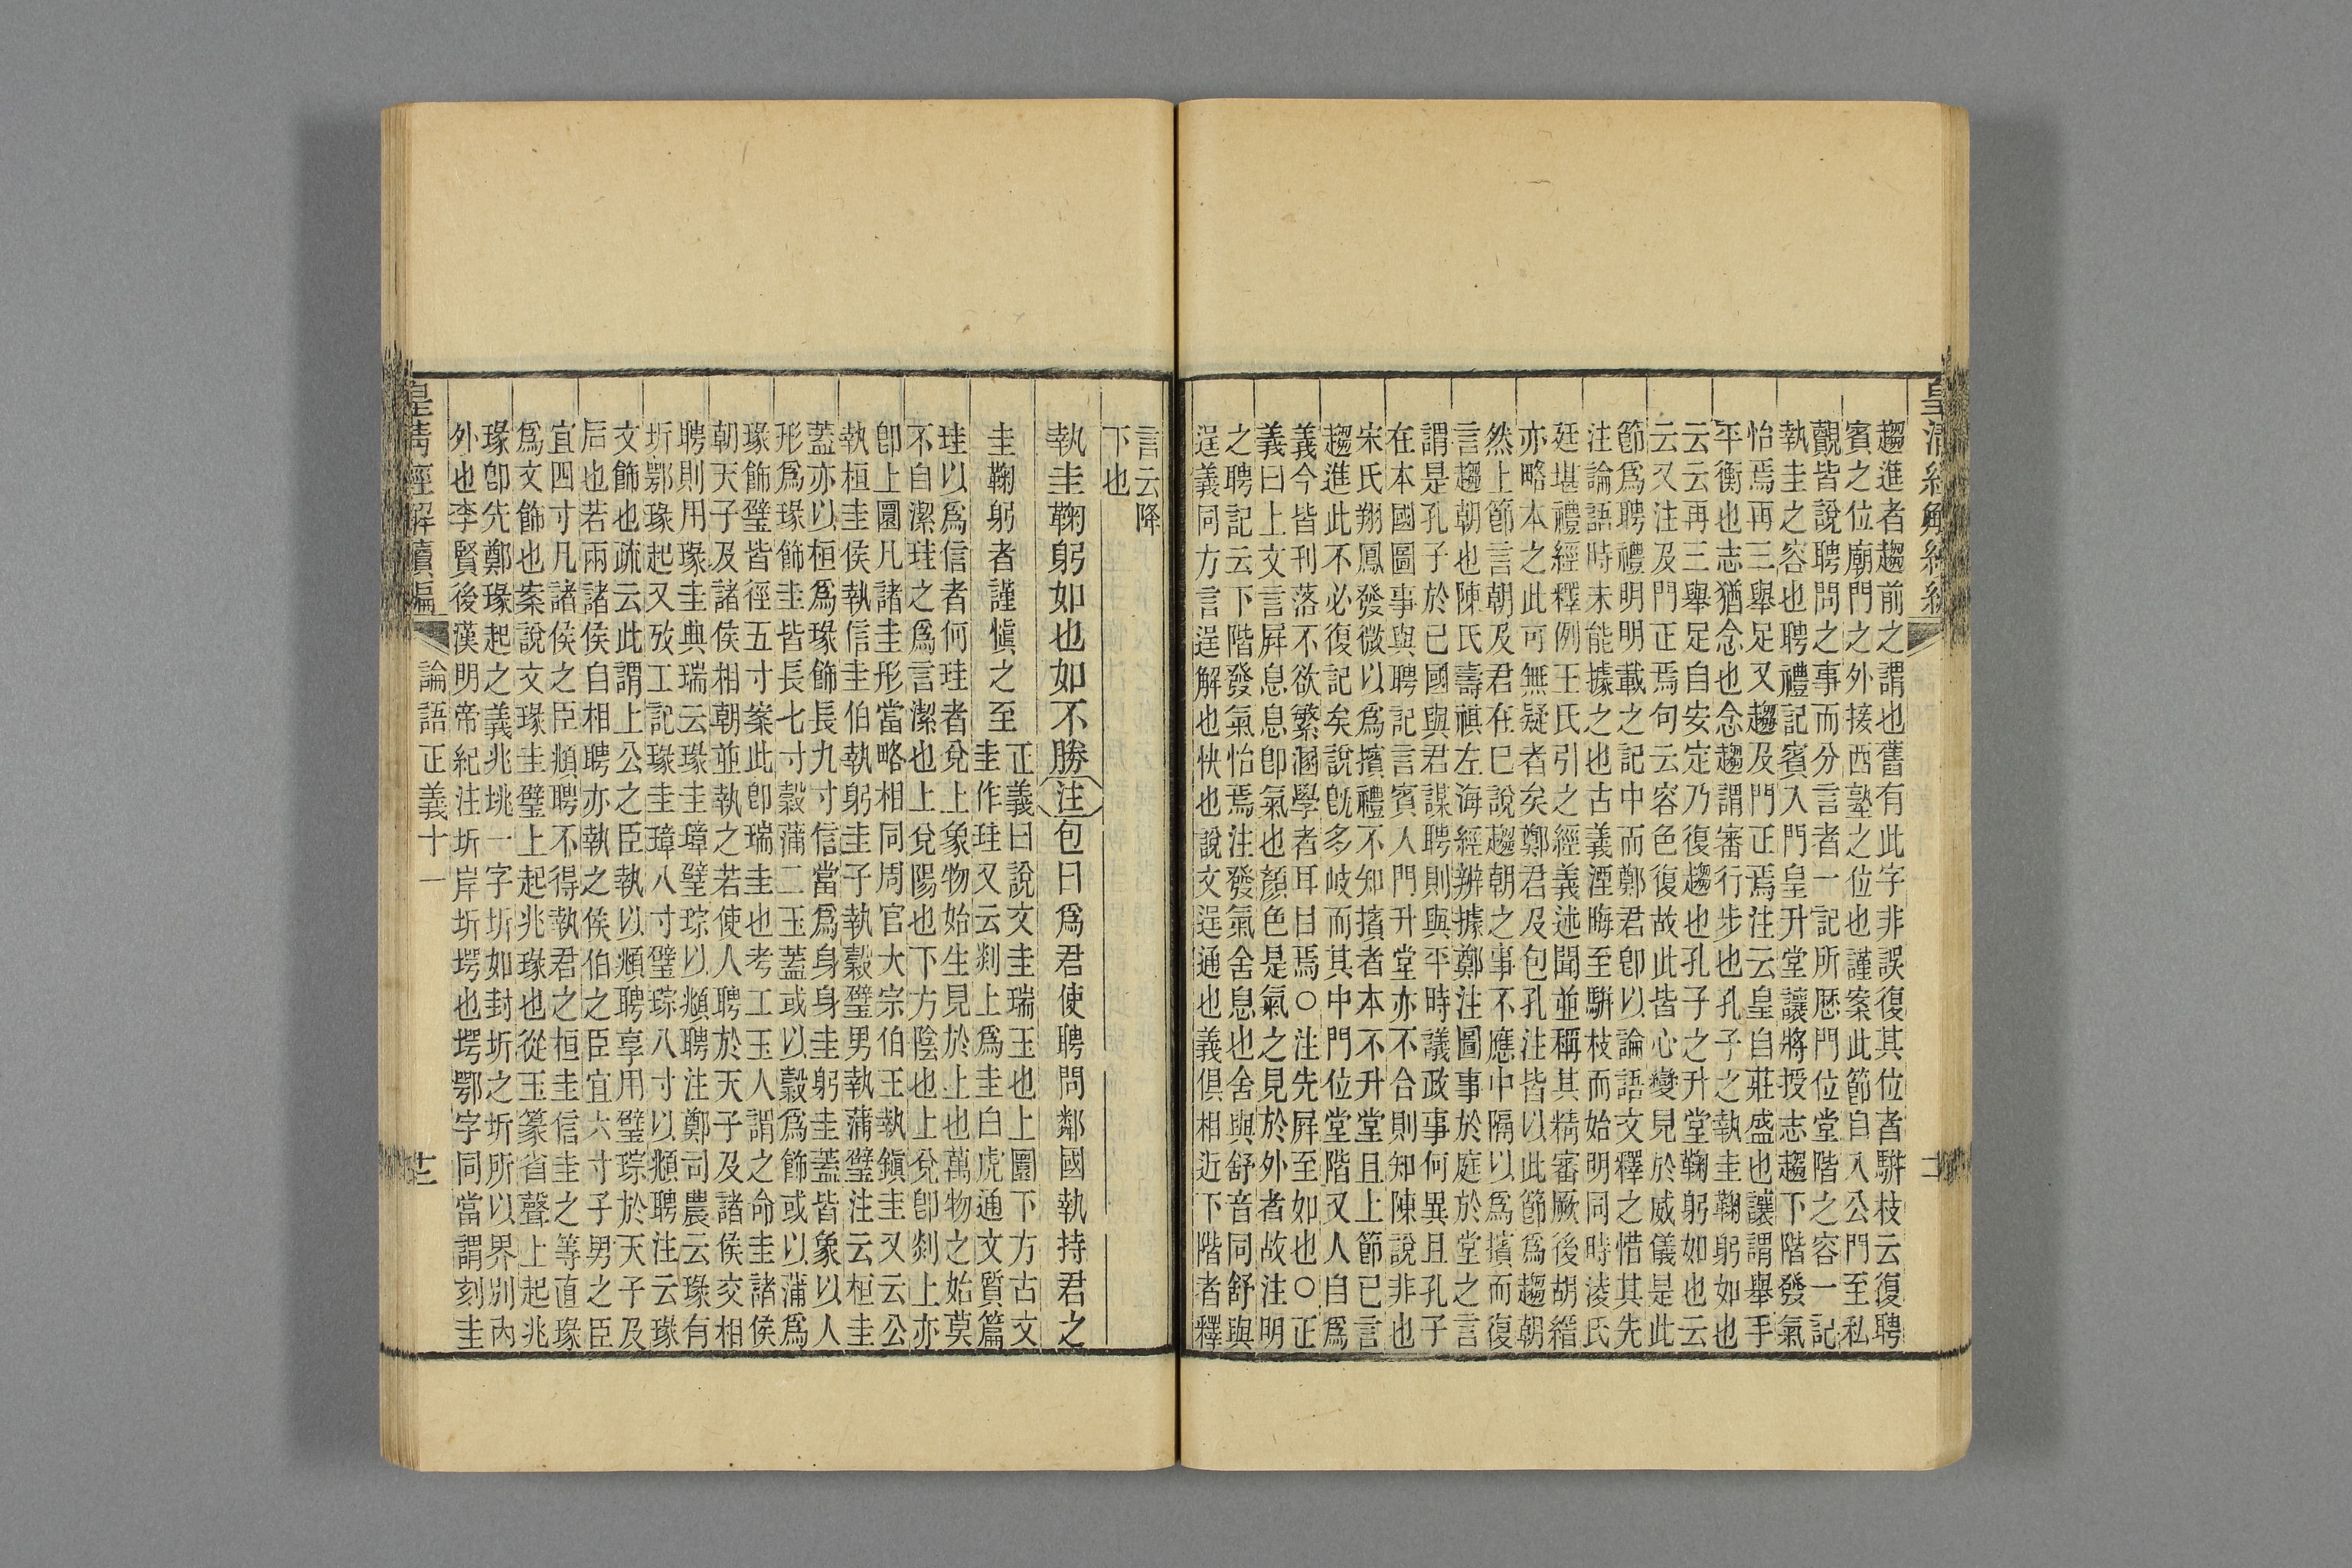 皇清經解續編
二
趨進者趨前之謂也舊有此字非誤復其位者駢枝云復聘
賓之位廟門之外接西塾之位也謹案此節自入公門至私
覿皆說聘問之事而分言者一記所歷門位堂階之容一記
執圭之容也聘禮記賓入門皇升堂讓將授志趨下階發氣
怡焉再三舉足又趨及門正焉注云皇自莊盛也讓謂舉手
平衡也志猶念也念趨謂審行步也孔子之執圭鞠躬如也
云云再三舉足自安定乃復趨也孔子之升堂鞠躬如也云
云又注及門正焉句云容色復故此皆心變見於威儀是此
節爲聘禮明明載之記中而鄭君卽以論語文釋之惜其先
注論語時未能據之也古義湮晦至駢枝而始明同時淩氏
廷堪禮經釋例王氏引之經義述聞並稱其精審厥後胡縉
亦略本之此可無疑者矣鄭君及包孔注皆以此節爲趨朝
然上節言朝及君在巳說趨朝之事不應中隔以爲擯而復
言趨朝也陳氏壽祺左海經辨據鄭注圖事於庭於堂之言
謂是孔子於已國與君謀聘則與平時議政事何異且孔子
在本國圖事與聘記言賓人門升堂亦不合則知陳說非也
宋氏翔鳳發微以爲擯禮不知擯者本不升堂且上節已言
趨進此不必復記矣說旣多岐而其中門位堂階又人自爲
義今皆刊落不欲繁溷學者耳目焉○注先屛至如也○正
義曰上文言屛息息卽氣也顏色是氣之見於外者故注明
之聘記云下階發氣怡焉注發氣舍息也舍與舒音同舒與
逞義同方言逞解也快也說文逞通也義俱相近下階者釋
言云降
下也
執圭鞠躬如也如不勝注包曰爲君使聘問鄰國執持君之
圭鞠躬者謹愼之至
正義曰說文圭瑞玉也上圜下方古文
圭作珪又云剡上爲圭白虎通文質篇
珪以爲信者何珪者兌上象物始生見於上也萬物之始莫
不自潔珪之爲言潔也上兌陽也下方陰也上兌卽剡上亦
卽上圜凡諸圭形當略相同周官大宗伯王執鎭圭又云公
執桓圭侯執信圭伯執躬圭子執穀璧男執蒲璧注云桓圭
蓋亦以桓爲瑑飾長九寸信當爲身身圭躬圭蓋皆象以人
形爲瑑飾圭皆長七寸穀蒲二玉蓋或以穀爲飾或以蒲爲
瑑飾璧皆徑五寸案此卽瑞圭也考工玉人謂之命圭諸侯
朝天子及諸侯相朝並執之若使人聘於天子及諸侯交相
聘則用瑑圭典瑞云瑑圭璋璧琮以頫聘注鄭司農云瑑有
圻鄂瑑起又攷工記瑑圭璋八寸璧琮八寸以頫聘注云瑑
文飾也疏云此謂上公之臣執以頫聘享用璧琮於天子及
后也若兩諸侯自相聘亦執之侯伯之臣宜六寸子男之臣
宜四寸凡諸侯之臣頫聘不得執君之桓圭信圭之等直瑑
爲文飾也案說文瑑圭璧上起兆瑑也從玉篆省聲上起兆
瑑卽先鄭瑑起之義兆垗一字圻如封圻之圻所以界別內
外也李賢後漢明帝紀注圻岸圻堮也堮鄂字同當謂刻圭
皇清經解續編
論語正義十一
十二